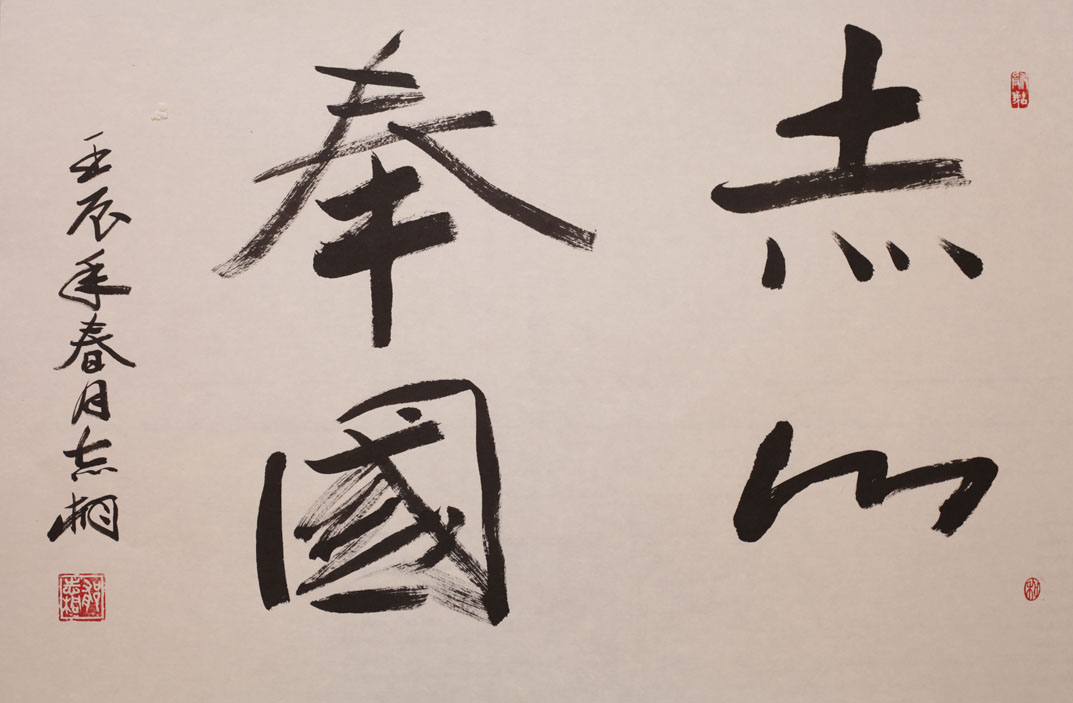 赤心
奉國
壬辰年春月志桐